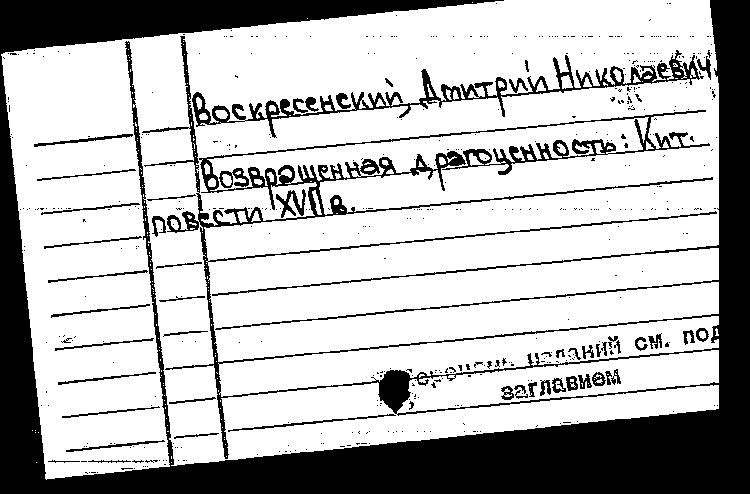 Воскресенский, Дмитрий Николаевич.
Возвращенная драгоценность: Кит.
повести XVII в.
Перечень изданий см. под
заглавием